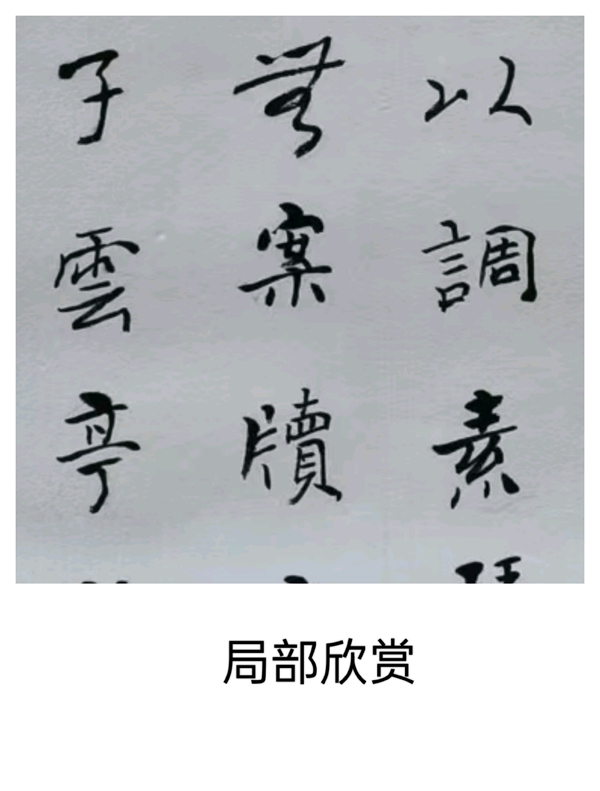 以調素
無案牘
子雲亭
局部欣赏